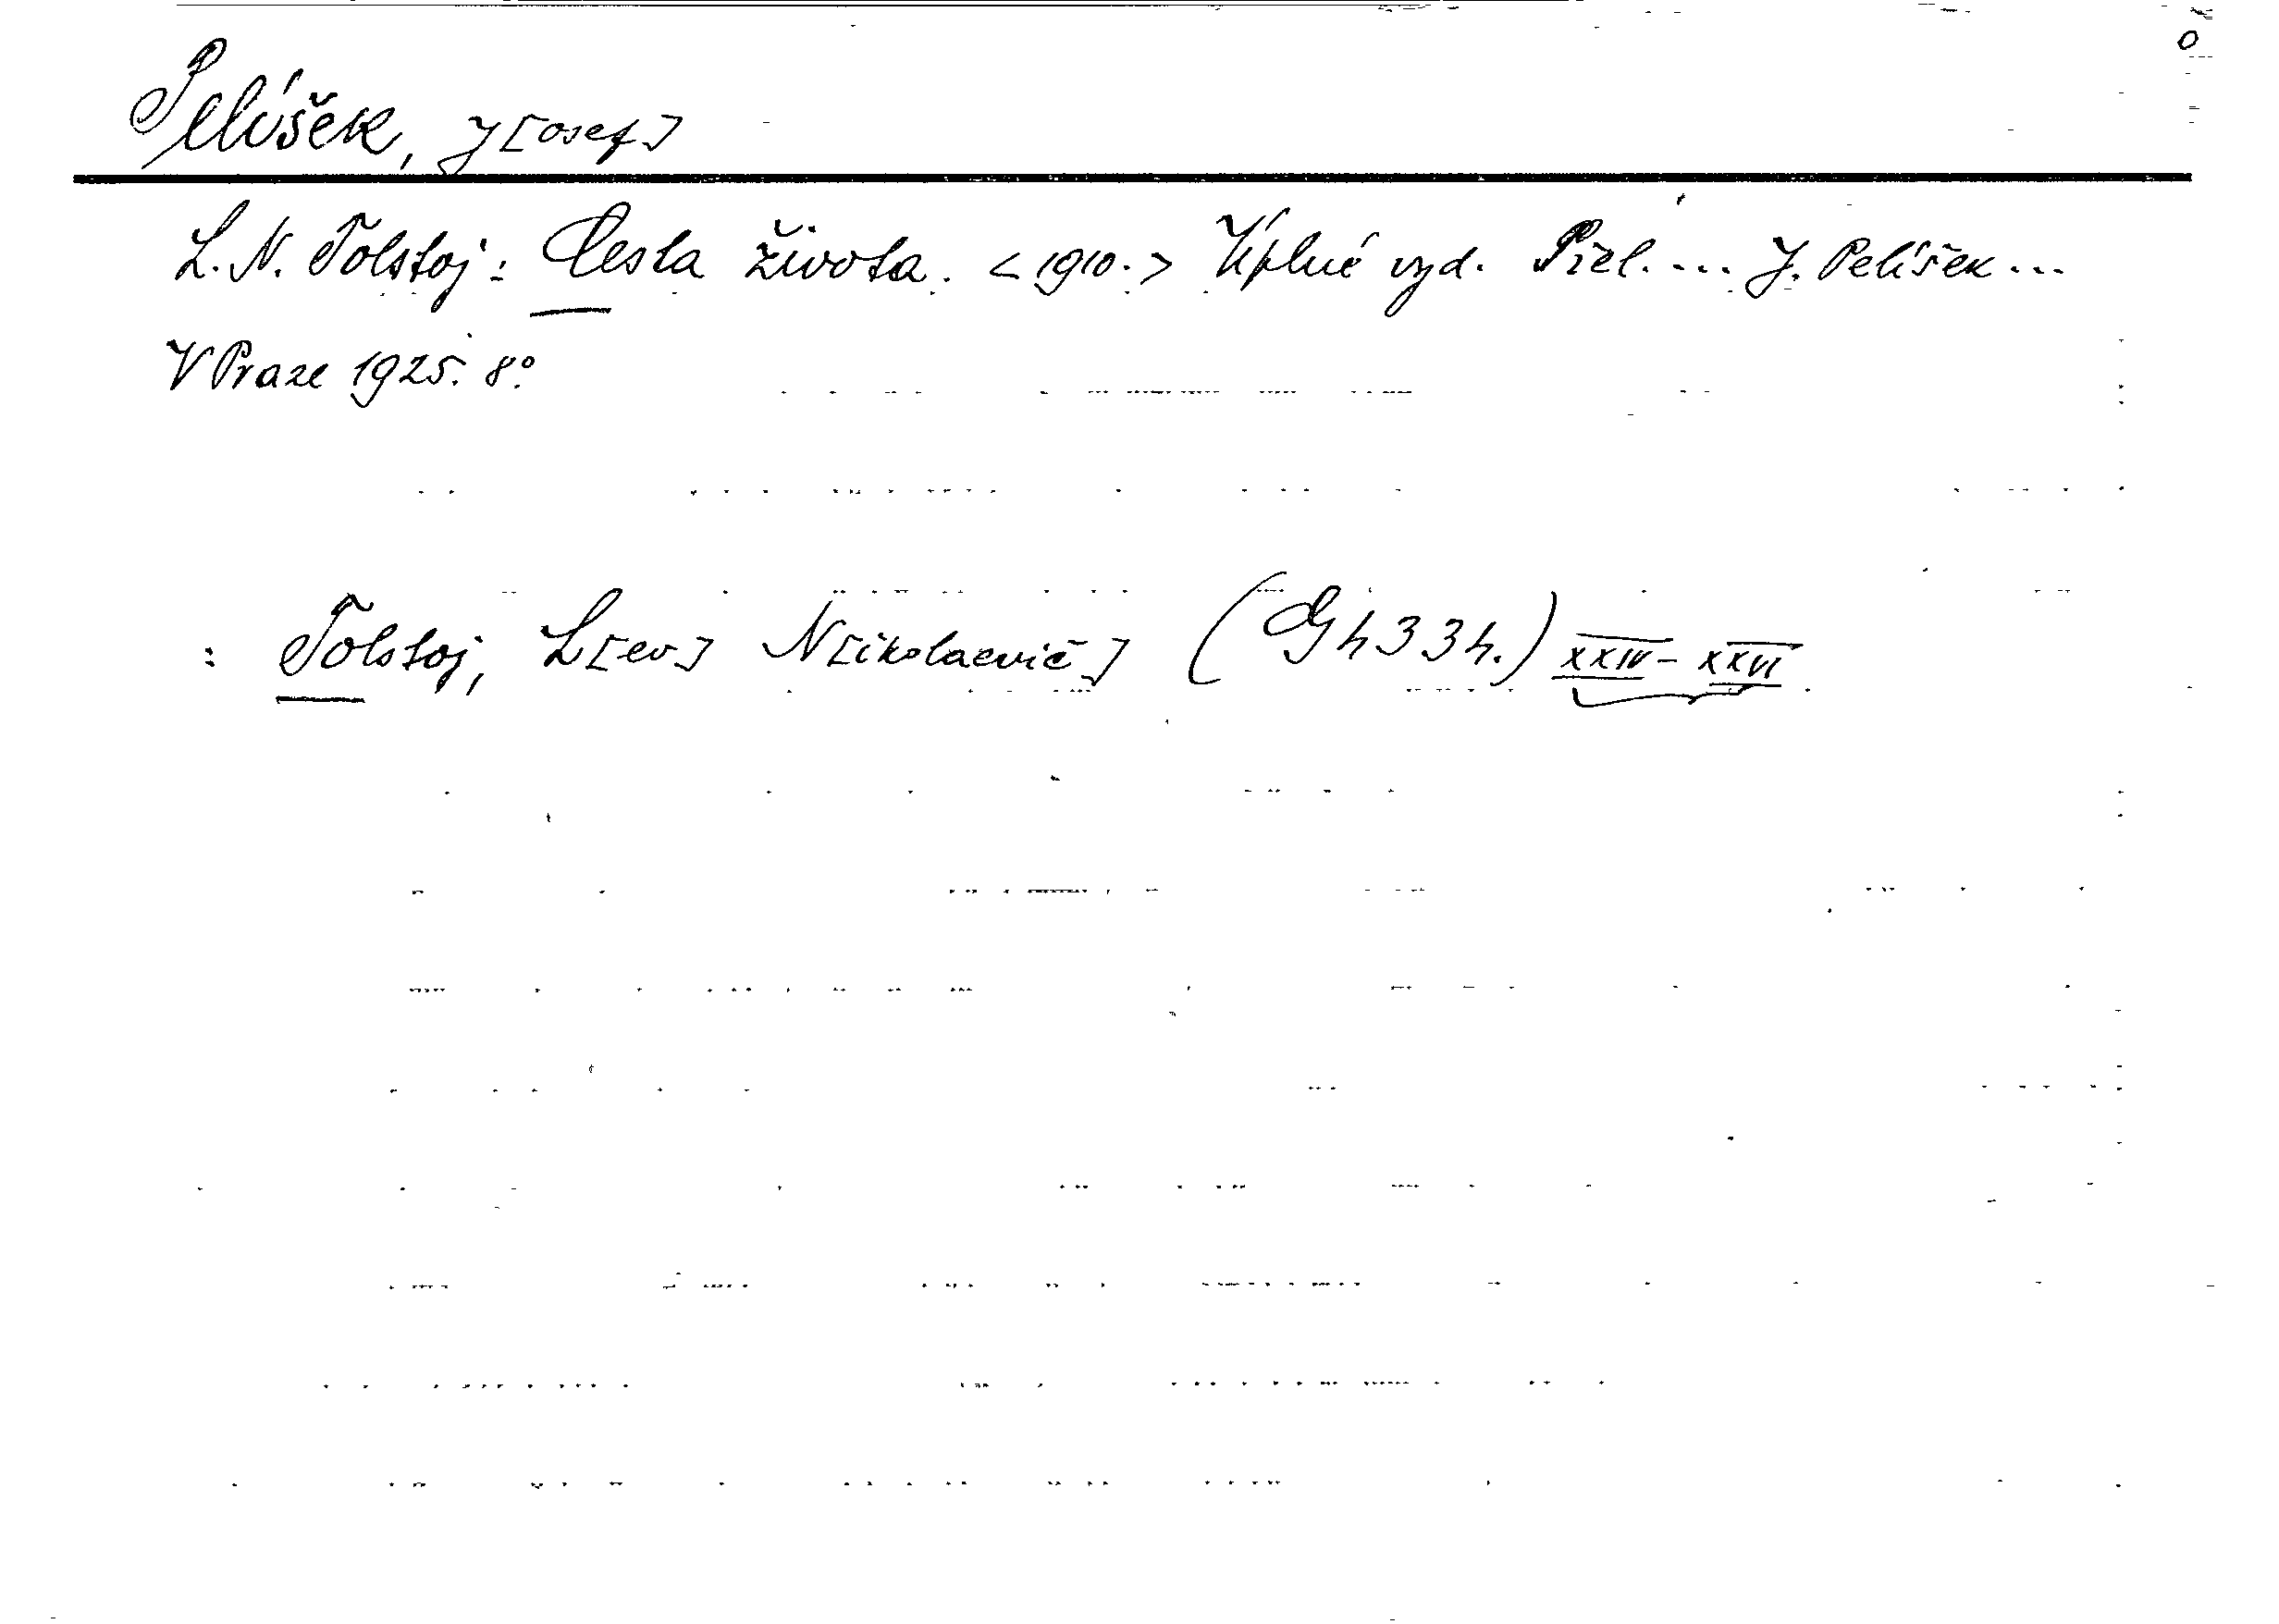 Pelíšek, J[osef]
L. N. Tolstoj: Cesta života. <1910.> Úplné vyd. Přel. ... J. Pelíšek ...
V Praze 1925. 8°
: Tolstoj, L[ev] N[ikolaevič] (Gh 334.) XXIV - XXVI